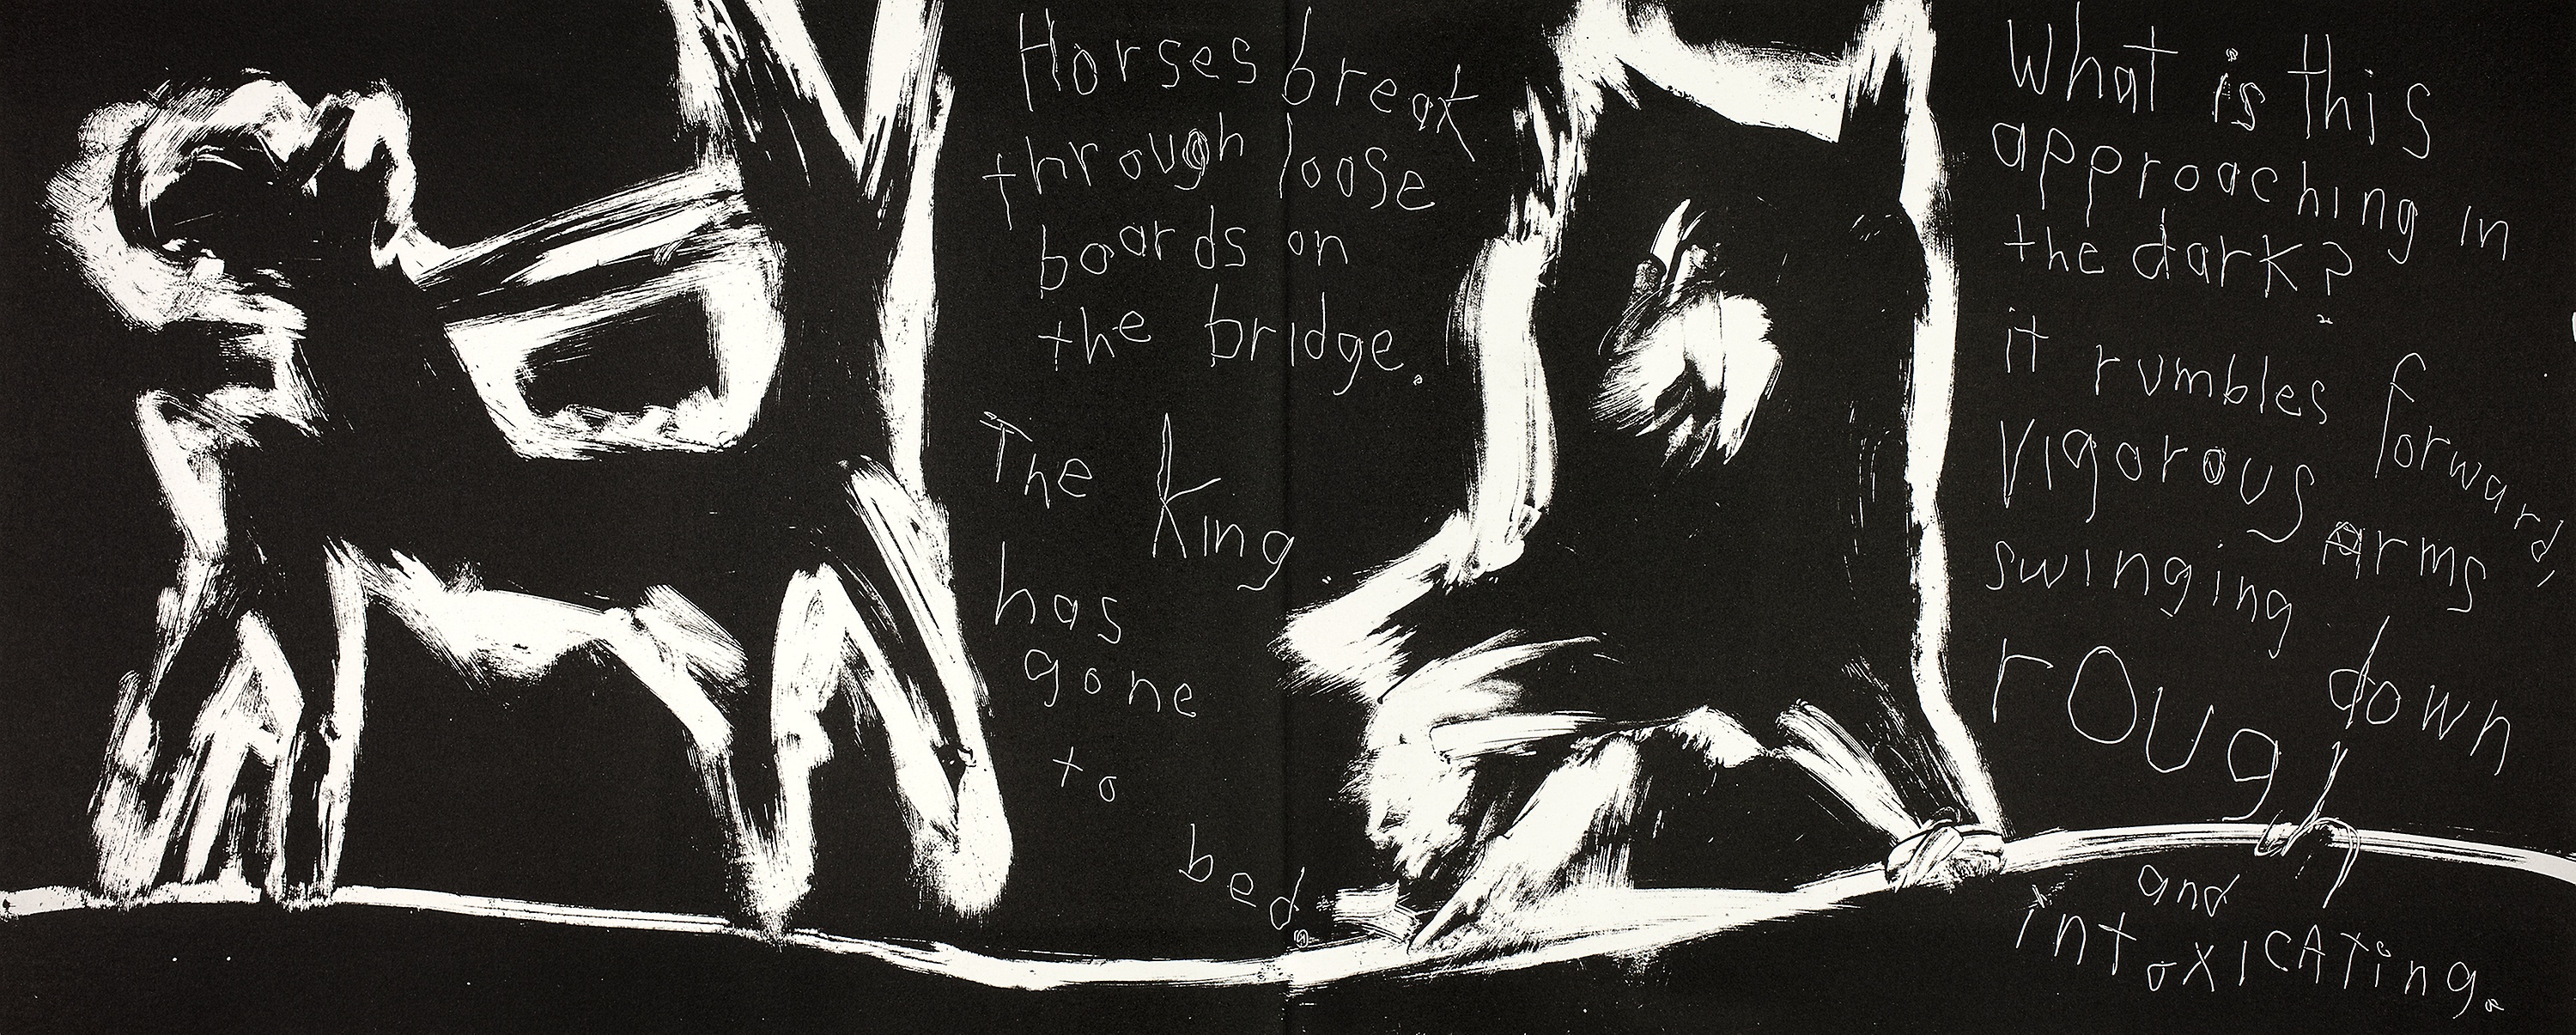 Horses break
through loose
boards on
the bridge.
The King
has
gone
to
bed.
What is this
approaching in
the dark?
it rumbles forward,
vigorous arms
swinging down
rough
and
intoxicating.